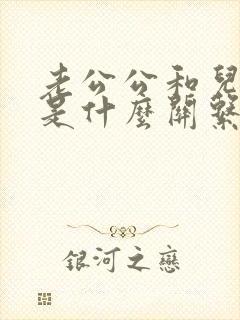 老公公和兒
是什麼關繫
銀河之戀